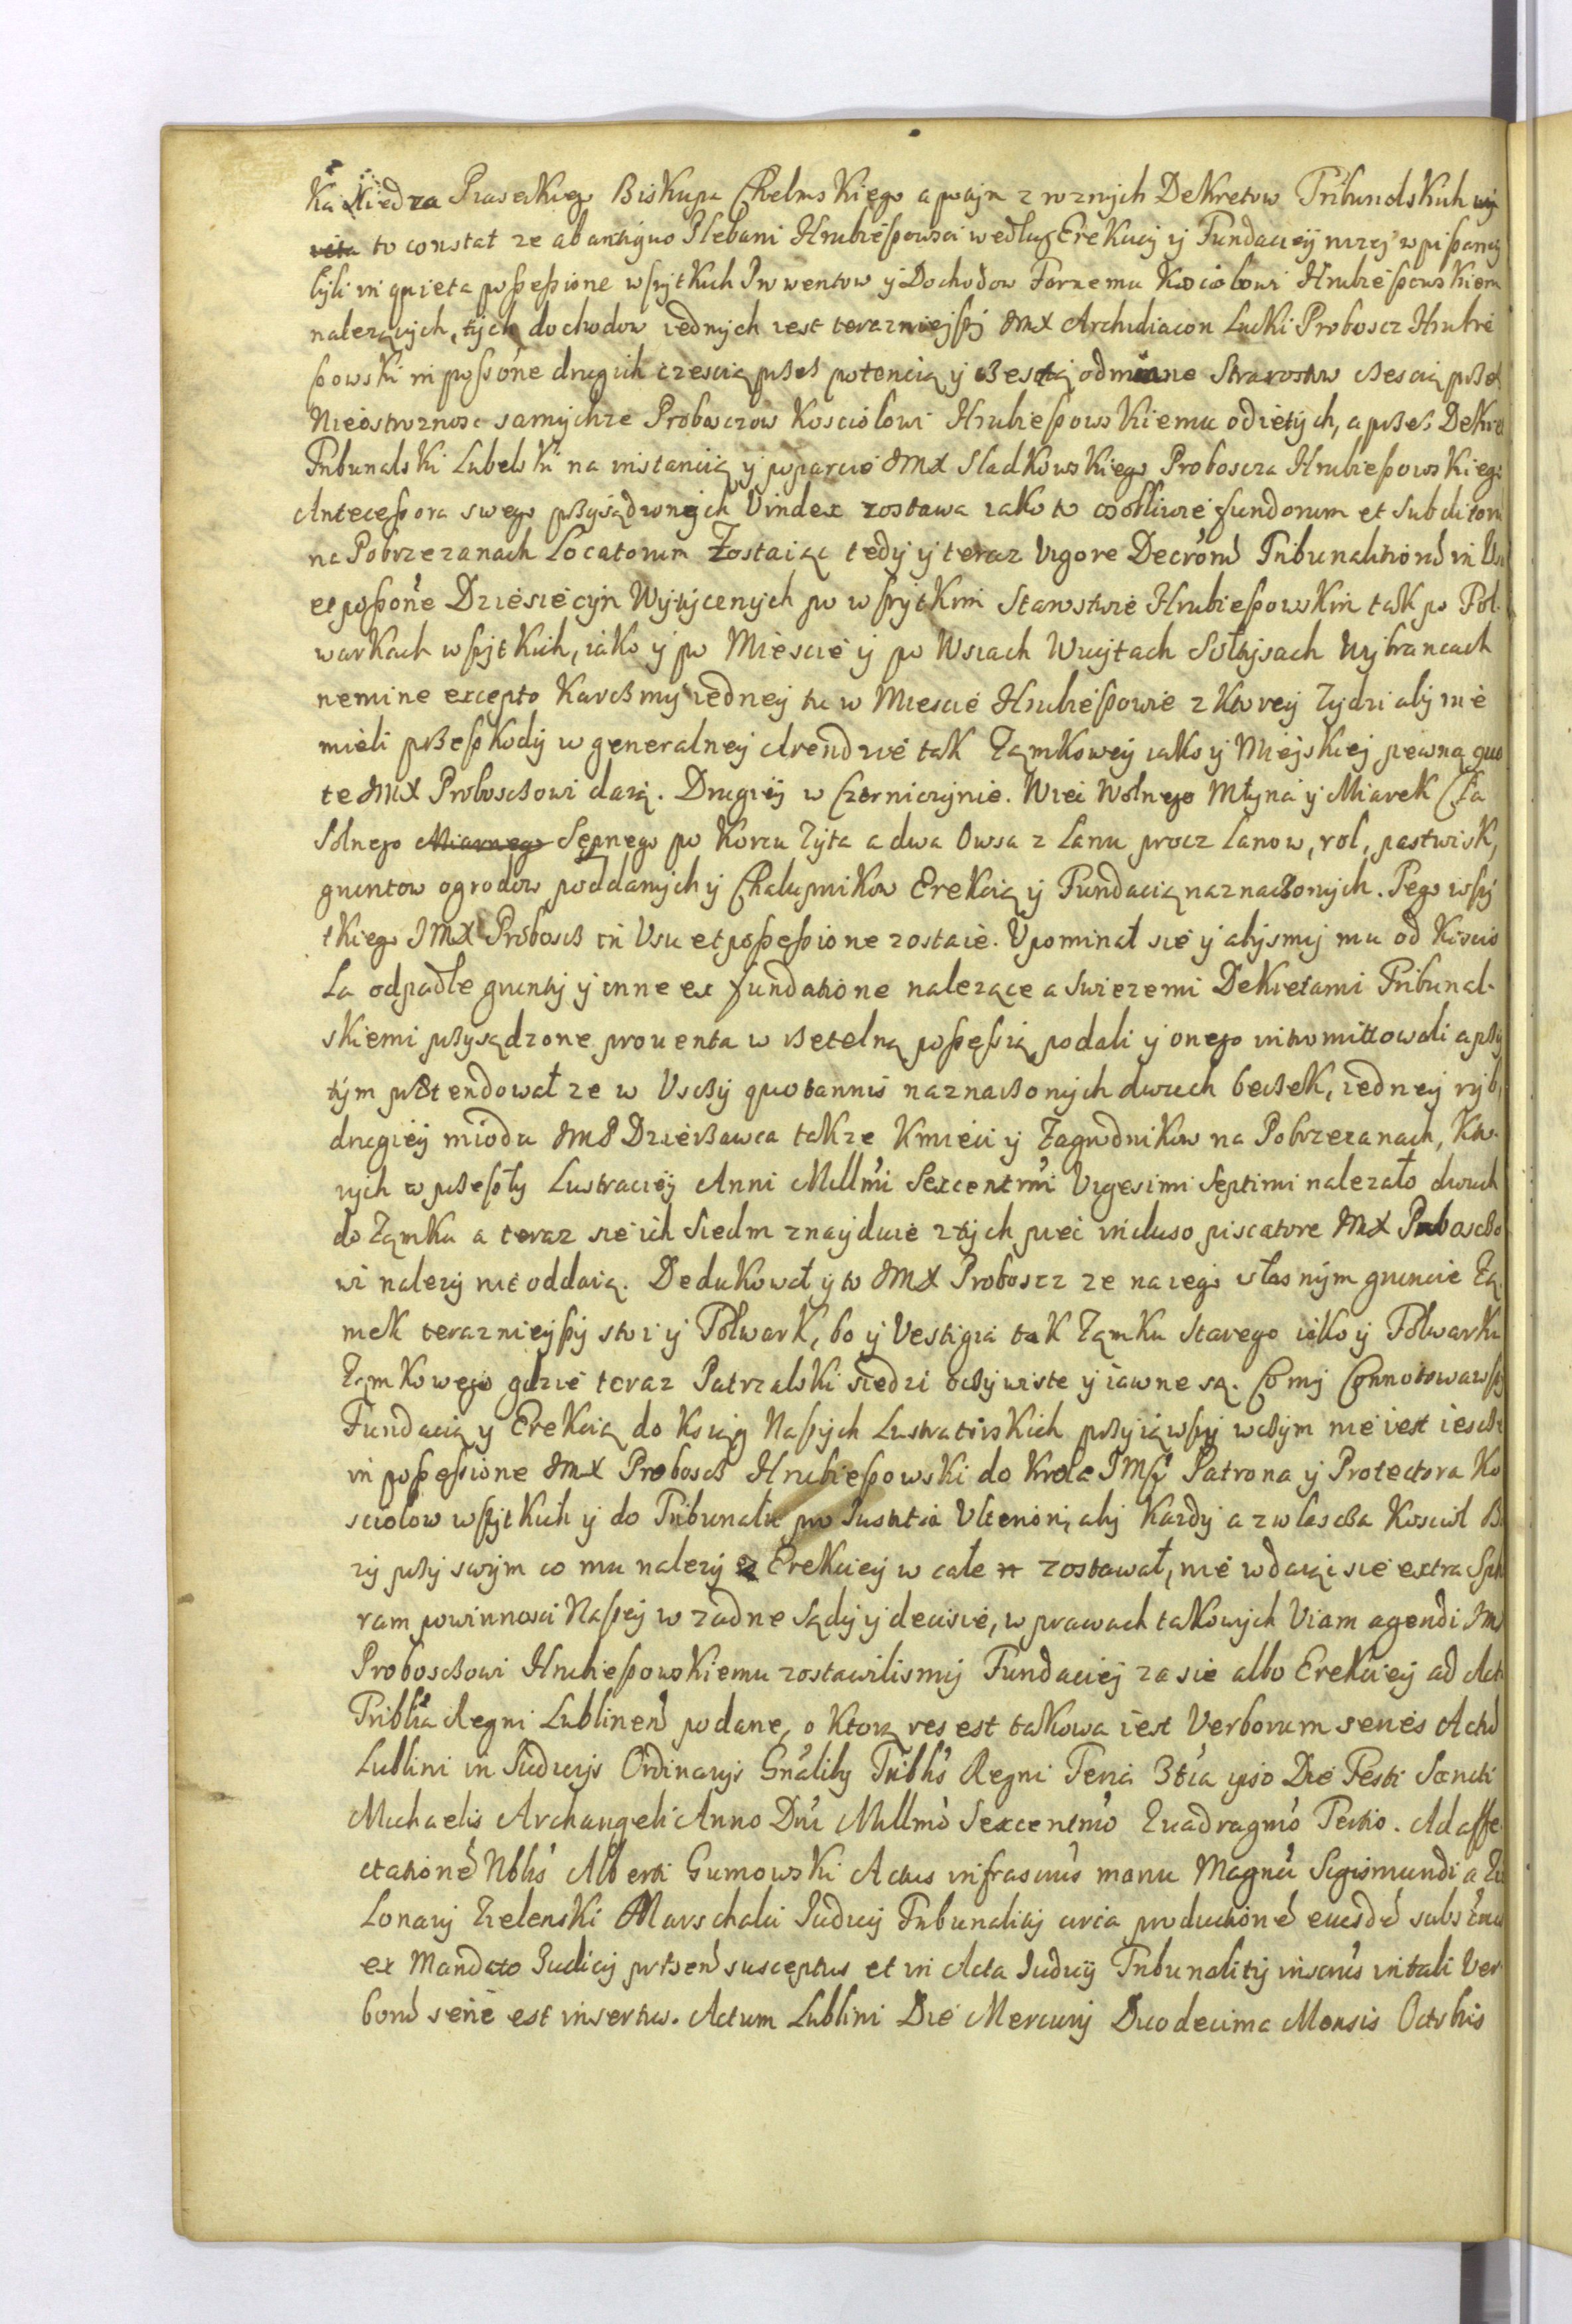 Ka Xiedza Piaseckiego Biskupa Chelmskiego a potym z roznych Dekretow Tribunalskich
to constat ze ab antiquo Plebani Hrubieszowsci według Erekcyi y Fundacyij nizej wpisaney
byli in quieta possessione wszytkich Prowentow y Dochodow Farnemu Kosciołowi Hrubieszowskiem
nalezących, tych dochodow iednych iest teraznieyszy JMX Archidiacon Lucki Proboscz Hrubie
szowski in possone drugich czescią przez potencią y czestą odmiane Starostw czescią przez
Nieostroznosc samychze Proboszczow Kosciolowi Hrubieszowskiemu odiętych, a przez Dekre
Tribunalski Lubelski na instancią y poparcie JMX Sladkowskiego Proboscza Hrubieszowskiego
Antecessora swego przysądzonych Vindex zostawa iako to osobliwie fundorum et subditorum
na Pobrzezanach Locatorum Zostaiąc tedy y teraz vigore Decrorum Tribunalitiorum in Usu
et possone Dziesięcyn Wytycznych po wszytkim Starostwie Hrubieszowskim tak po Fol-
warkach wszytkich, iako y po Miescie y po Wsiach Wuytach Sołtysach Wybrancach
nemine excepto Karczmy iedney tu w Miescie Hrubieszowie z ktorey Zydzi aby nie
mieli przeszkody w generalney Arendzie tak Zamkowey iako y Mieyskiey pewną quo
te JMX Proboszczowi daią. Drugiey w Czerniczynie. Wsi Wolnego Młyna y Miarek Cła
Solnego Miarnego Sępnego po Korcu Zyta a dwa Owsa z Lanu procz Lanow, rol, pastwisk,
gruntow ogrodow poddanych y Chalupnikow Erekcią y Fundacią naznaczonych. Tego wszy
tkiego JMX Proboszcz in Usu et possessione zostaie. Upominał sie y abysmy mu od Koscio
la odpadle grunty y inne ex fundatione nalezące a swiezemi Dekretami Tribunal-
skiemi przysądzone prouenta w rzetelną possessią podali y onego intromittowali a przy
tym prætendował ze w Usczy quotannis naznaczonych dwuch beczek, iedney ryb,
drugiey miodu JMP Dzierzawca takze Kmieci y Zagrodnikow na Pobrzezanach, Kto-
rych w przeszły Lustracyey Anni Millmi Sexcentmi Vigesimi Septimi nalezało dwuch
do Zamku a teraz sie ich siedm znayduie z tych pięć incluso piscatore JMX Proboszczo
wi nalezy nie oddaią. Dedukował y to JMX Proboszcz ze na iego własnym gruncie Za-
mek teraznieyszy stoi y Folwark, bo y Vestigia tak Zamku Starego iako y Folwarku
Zamkowego gdzie teraz Patrzalski siedzi oczywiste y iawne są. Co my Connotowawszy
Fundacią y Erekcią do Ksiąg Naszych Lustratorskich przyiąwszy w czym nie iest ieszcze
in possessione JMX Proboszcz Hrubieszowski do Krola JMSCi Patrona y Protectora Ko
sciolow wszytkich y do Tribunału pro Iustitia Ulteriori, aby kazdy a zwlascza Kosciol Bo
zy przy swym co mu nalezy z Erekciey w cale zostawał, nie wdaiąc sie extra Sphæ
ram powinnosci Naszey w zadne Sądy y decisie, w prawach takowych Viam agendi JMX
Proboszczowi Hrubieszowskiemu zostawilismy Fundaciey za sie albo Erekciey ad Acta
Triblia Regni Lublinen podane, o ktorą res est takowa iest Verborum series Actum
Lublini in Iudicijs Ordinarijs Gnalibus Triblis Regni Feria 3tia ipso Die Festi Sancti
Michaelis Archangeli Anno Dni Millmo Sexcentmo Quadragmo Tertio. Ad affe
ctationem Nblis Alberti Gumowski Actus infrascrius manu Magnci Sigismundi a
Lonary Zielenski Marschalci Iudicij Tribunalitij circa productionem eiusdem
ex Mandato Iudicij præsen susceptus et in Acta Iudicij Tribunalitij inscrius in tali Ver
borum serie est insertus. Actum Lublini Die Mercurij Duodecima Mensis Octobris